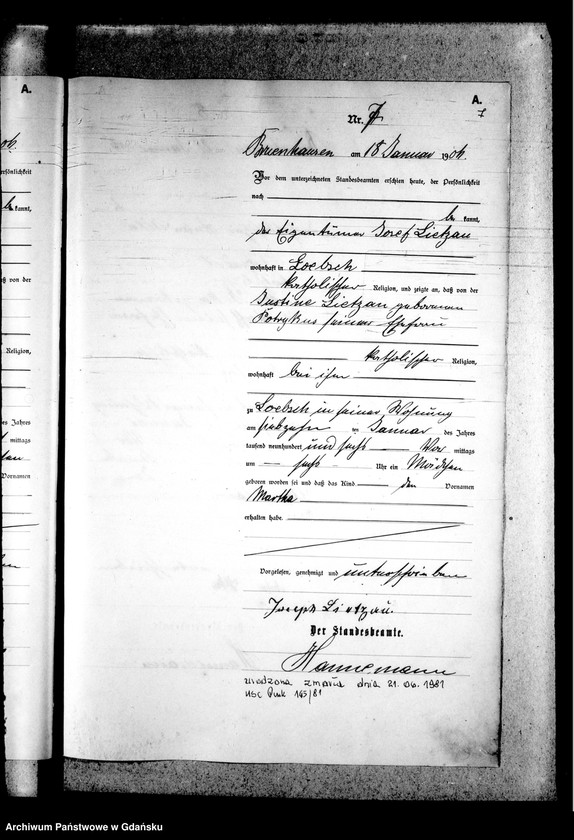 A.
A.
7
Nr. 7
Bruenhausen am 18 Januar 1906.
Vor dem unterzeichneten Standesbeamten erschien heute, der Persönlichkeit
nach
be kannt,
der Eigentümer Josef Lietzau
wohnhaft in Loebsch
katholischer Religion, und zeigte an, daß von der
Justine Lietzau geborenen
Potrykus seiner Ehefrau
katholischer Religion,
wohnhaft bei ihm
zu Loebsch in seiner Wohnung
am siebzehn ten Januar des Jahres
tausend neunhundert und sechs Vor mittags
um sechs Uhr ein Mädchen
geboren worden sei und daß das Kind den Vornamen
Martha
erhalten habe.
Vorgelesen, genehmigt und unterschrieben
Joseph Lietzau.
Der Standesbeamte.
Hannemann
urodzona zmarła dnia 21.06.1981
USC Puck 165/81
06.
ersönlichkeit
be kannt,
aß von der
Religion,
des Jahres
mittags
Vornamen
Archiwum Państwowe w Gdańsku